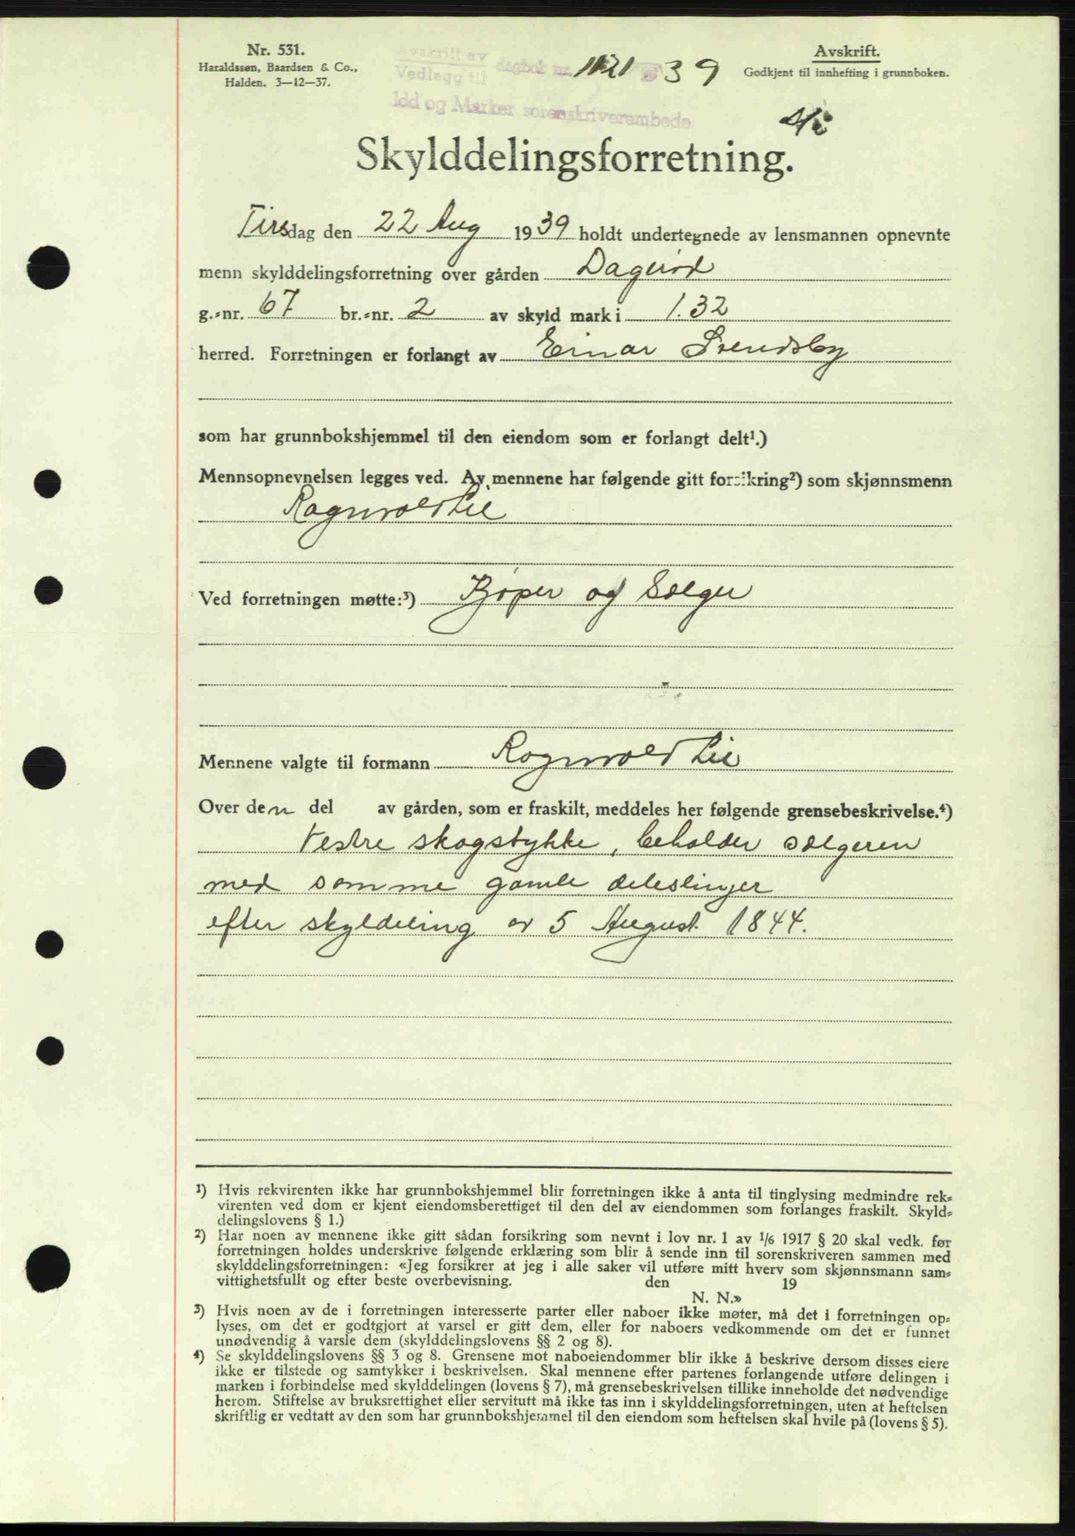 Nr. 531.
Haraldssen, Baardsen & Co.,
Halden. 3—12—37.
Avskrift av
Vedlegg til dagbok nr. 1121 39
Idd og Marker sorenskriverembede
Avskrift.
Godkjent til innhefting i grunnboken.
Skylddelingsforretning.
Tirsdag den 22 Aug 1939 holdt undertegnede av lensmannen opnevnte
menn skylddelingsforretning over gården Dagsrød
g.=nr. 67 br.=nr. 2 av skyld mark i 1.32
herred. Forretningen er forlangt av Einar Svendsby
som har grunnbokshjemmel til den eiendom som er forlangt delt¹.)
Mennsopnevnelsen legges ved. Av mennene har følgende gitt forsikring²) som skjønnsmenn
Ragnvald Lie
Ved forretningen møtte:³) Kjøper og Selger
Mennene valgte til formann Ragnvald Lie
Over den del av gården, som er fraskilt, meddeles her følgende grensebeskrivelse.⁴)
Vestre skogstykke, beholder selgeren
med samme gamle deleslinjer
efter skyldeling av 5 August 1844.
¹) Hvis rekvirenten ikke har grunnbokshjemmel blir forretningen ikke å anta til tinglysing medmindre rek=
virenten ved dom er kjent eiendomsberettiget til den del av eiendommen som forlanges fraskilt. Skyld=
delingslovens § 1.)
²) Har noen av mennene ikke gitt sådan forsikring som nevnt i lov nr. 1 av ¹/₆ 1917 § 20 skal vedk. før
forretningen holdes underskrive følgende erklæring som blir å sende inn til sorenskriveren sammen med
skylddelingsforretningen: «Jeg forsikrer at jeg i alle saker vil utføre mitt hverv som skjønnsmann sam=
vittighetsfullt og efter beste overbevisning. den 19
N. N.»
³) Hvis noen av de i forretningen interesserte parter eller naboer ikke møter, må det i forretningen op=
lyses, om det er godtgjort at varsel er gitt dem, eller for naboers vedkommende om det er funnet
unødvendig å varsle dem (skylddelingslovens §§ 2 og 8).
⁴) Se skylddelingslovens §§ 3 og 8. Grensene mot naboeiendommer blir ikke å beskrive dersom disses eiere
ikke er tilstede og samtykker i beskrivelsen. Skal mennene efter partenes forlangende utføre delingen i
marken i forbindelse med skylddelingen (lovens § 7), må grensebeskrivelsen tillike inneholde det nødvendige
herom. Stiftelse av bruksrettighet eller servitutt må ikke tas inn i skylddelingsforretningen, uten at heftelsen
skriftlig er vedtatt av den som har grunnbokshjemmel til den eiendom som heftelsen skal hvile på (lovens § 5).